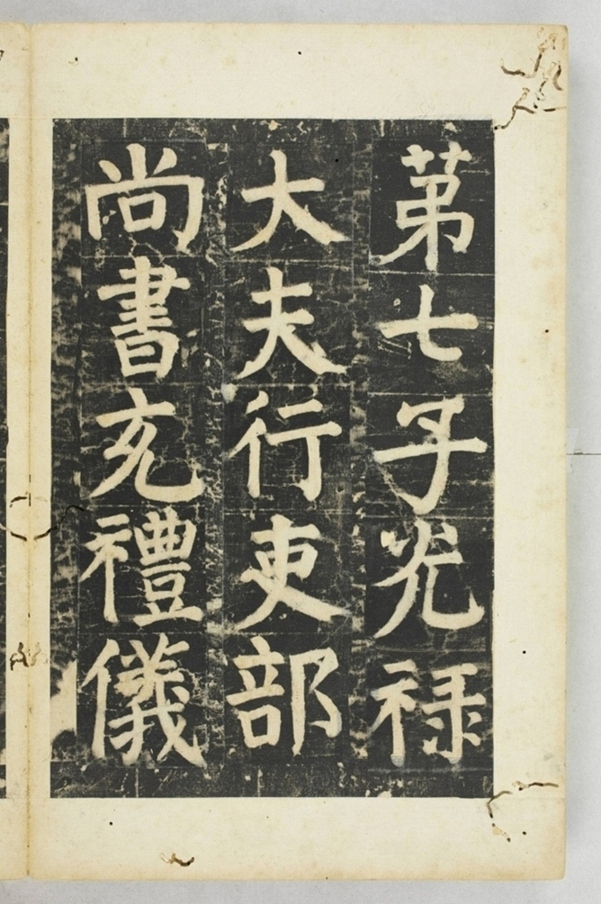 苐七子光禄
大夫行吏部
尚書充禮儀